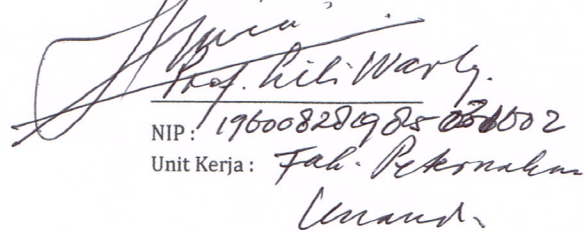 Prof. Lili Warly.
NIP : 19600828198503 1002
Unit Kerja : Fak. Peternakan
Unand.